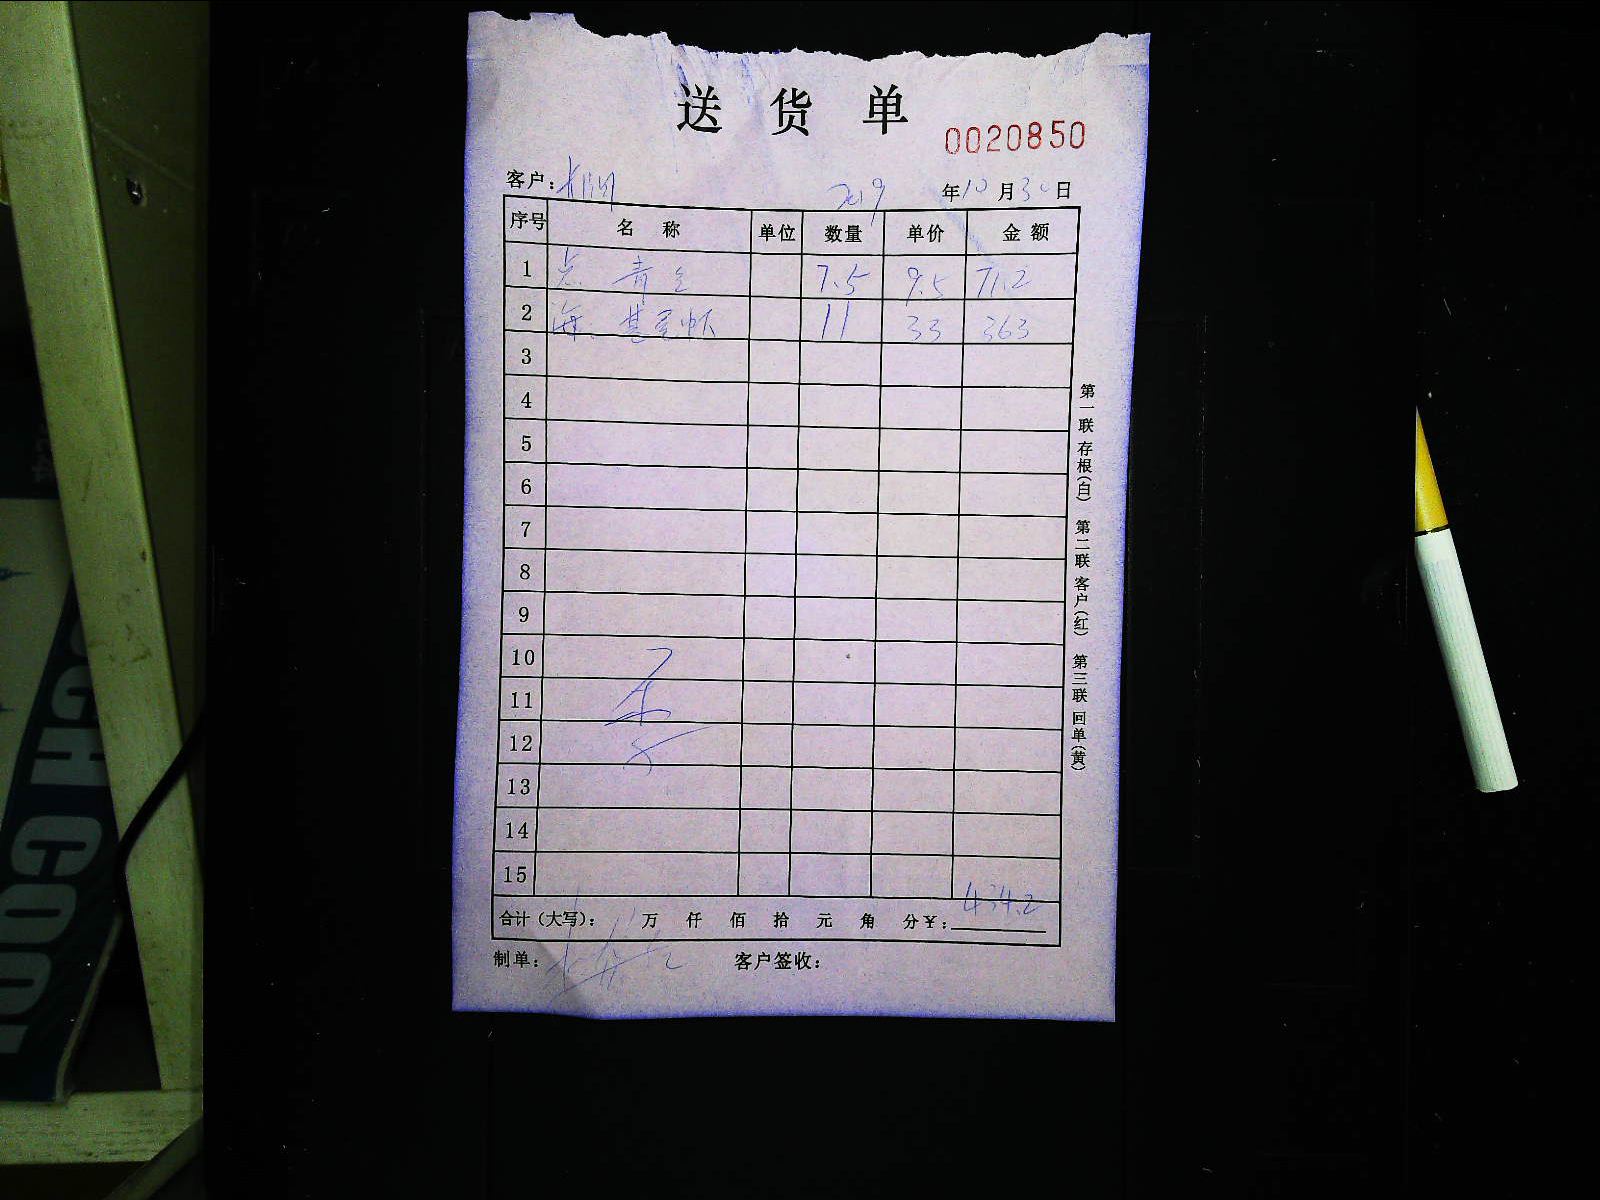 送货单
0020850
客户： 2019 年 10 月 30 日
序号 名称 单位 数量 单价 金额
1 7.5 9.5 71.2
2 11 33 363
3
4
5
6
7
8
9
10
11
12
13
14
15
合计（大写）： 万 仟 佰 拾 元 角 分 ￥： 434.2
制单： 客户签收：
第一联 存根（白） 第二联 客户（红） 第三联 回单（黄）
COOL